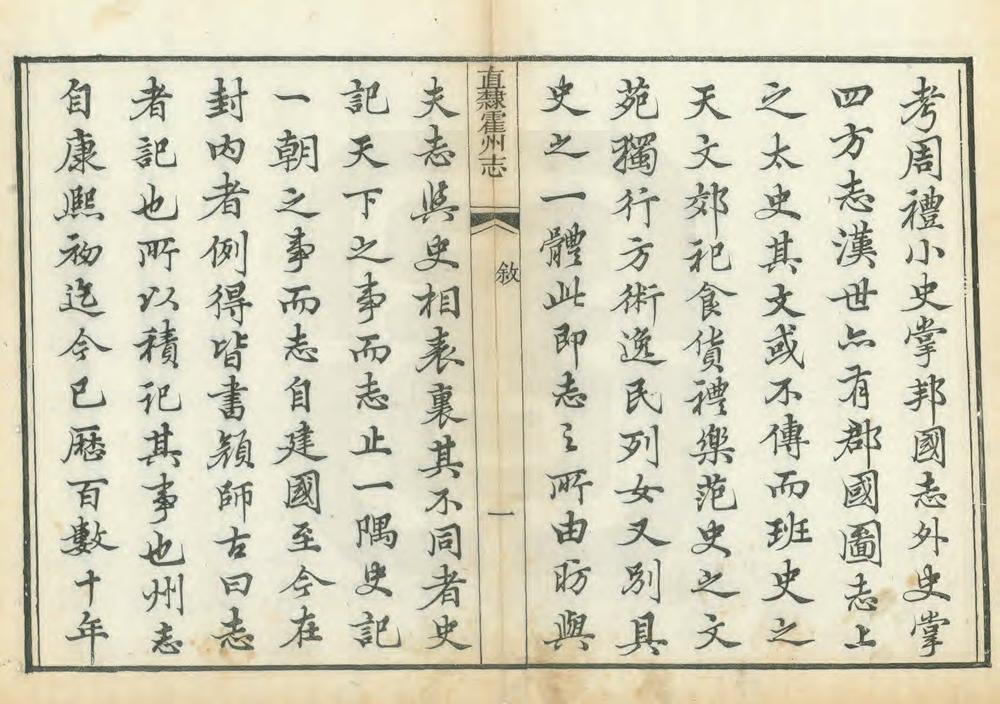 考周禮小史掌邦國志外史掌
四方志漢世亦有郡國圖志上
之太史其文或不傳而班史之
天文郊祀食貨禮樂范史之文
苑獨行方術逸民列女又別具
史之一體此即志之所由昉與
直隸霍州志
敘
一
夫志與史相表裏其不同者史
記天下之事而志止一隅史記
一朝之事而志自建國至今在
封内者例得皆書顏師古曰志
者記也所以積記其事也州志
自康熙初迄今已歷百數十年